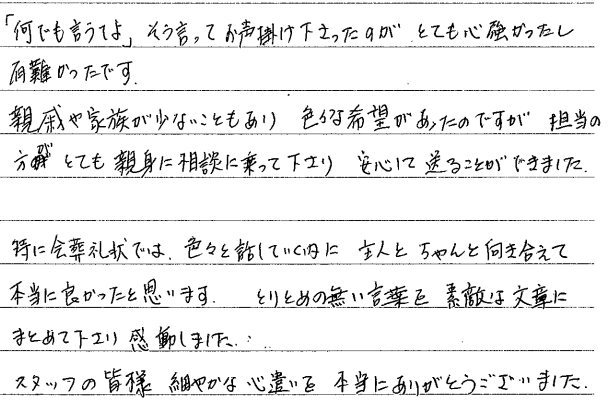 「何でも言うてよ」そう言って お声掛け下さったのが とても心強かったし
有難かったです.
親戚や家族が少ないこともあり 色々な希望があったのですが 担当の
方が とても 親身に相談に乗って下さり 安心して 送ることができました.
特に会葬礼状では、色々と話していく内に 主人と ちゃんと向き合えて
本当に良かったと思います. とりとめの無い言葉を 素敵な文章に
まとめて下さり 感動しました.
スタッフの皆様 細やかな心遣いを 本当にありがとうございました.